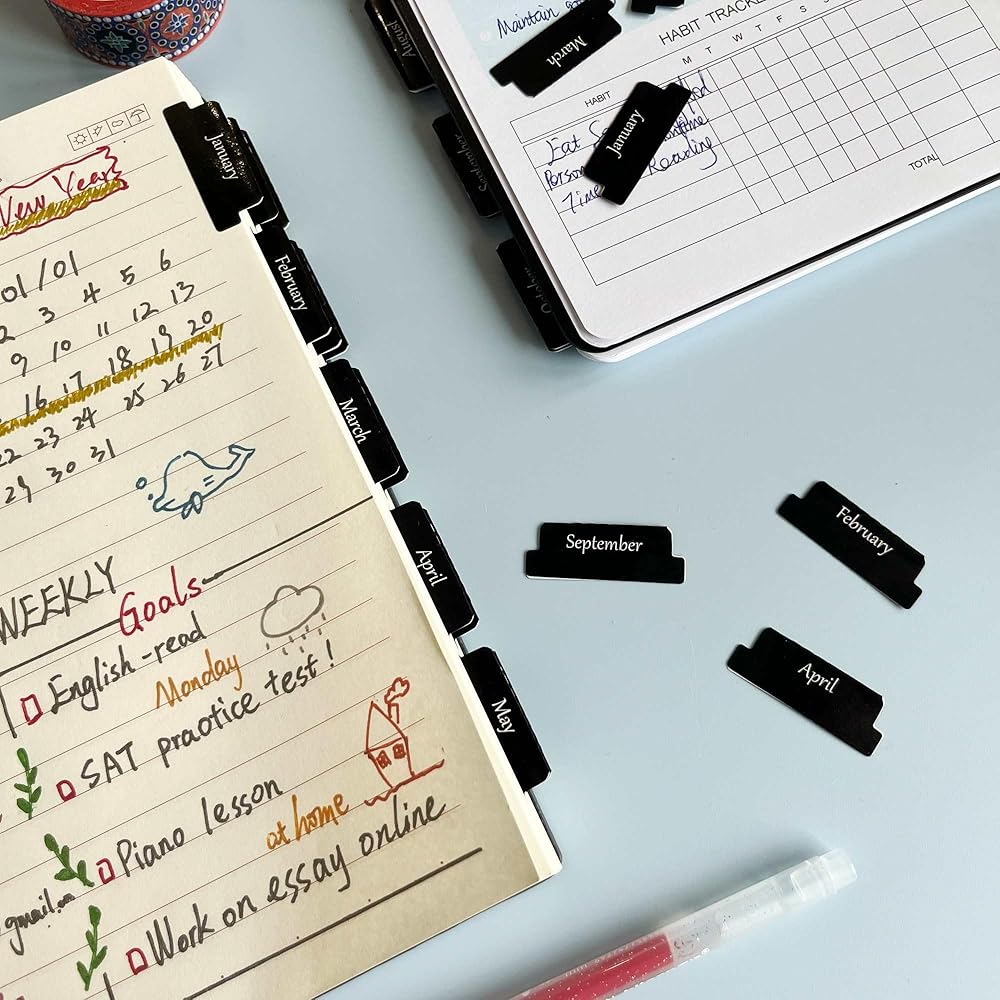 New Year
01/01
2 3 4 5 6
9 10 11 12 13
16 17 18 19 20
22 23 24 25 26 27
29 30 31
WEEKLY
Goals
English-read
Monday
SAT practice test!
Piano lesson
at home
Work on essay online
January
February
March
April
May
August
September
October
Maintain
March
January
HABIT
M T W T F S
HABIT
Eat
Reading
Time
TOTAL
September
February
April